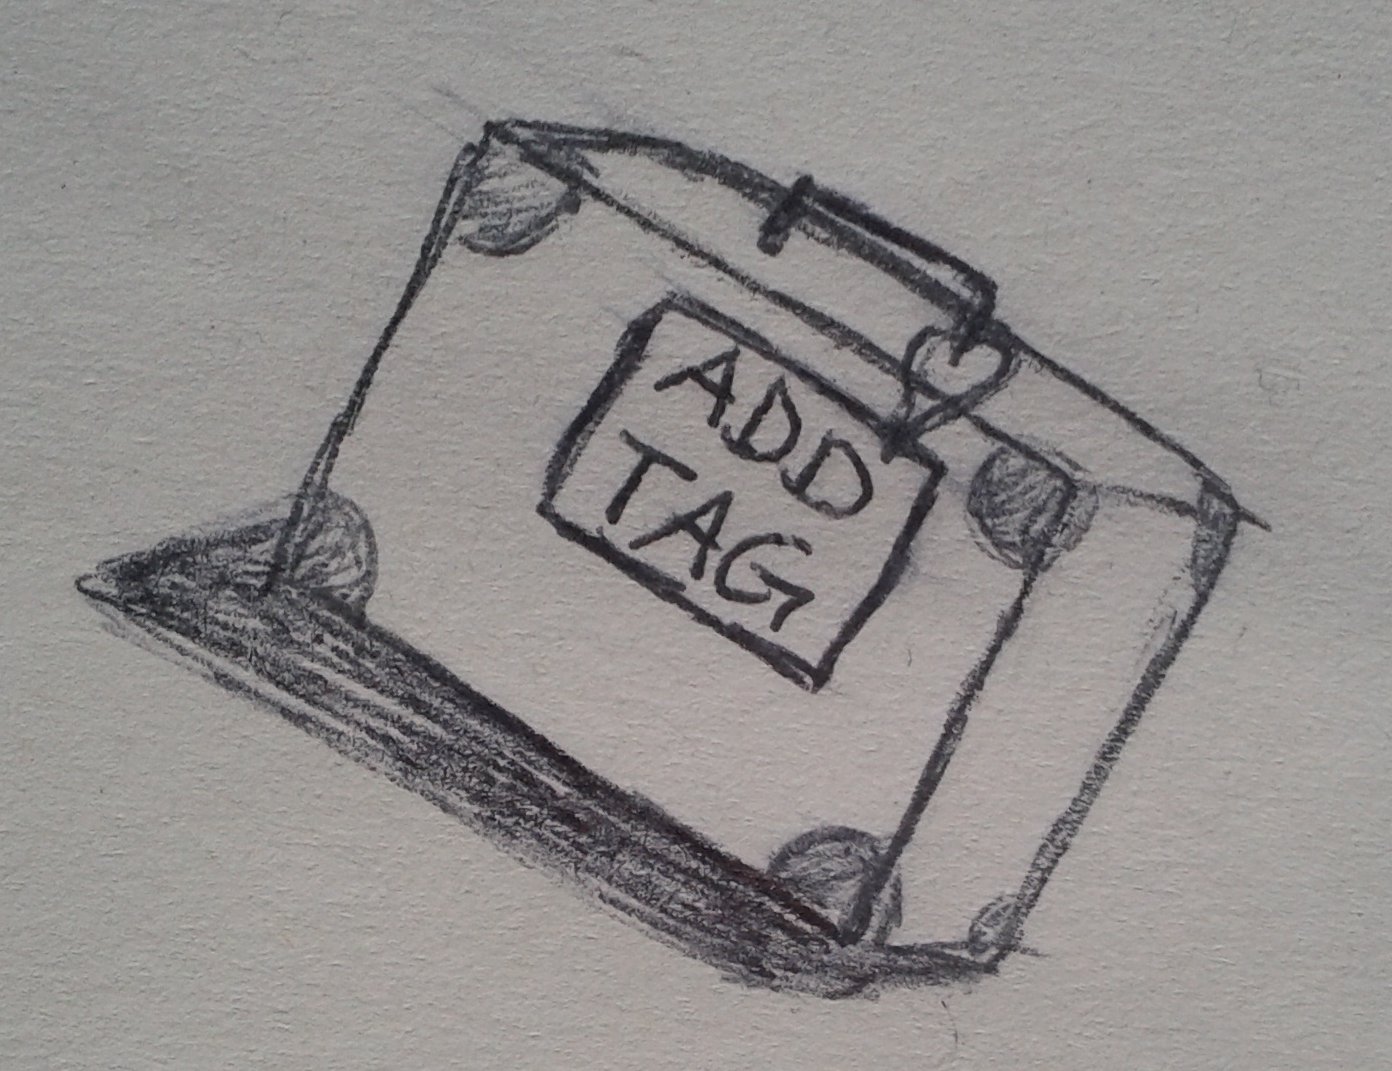 ADD
TAG